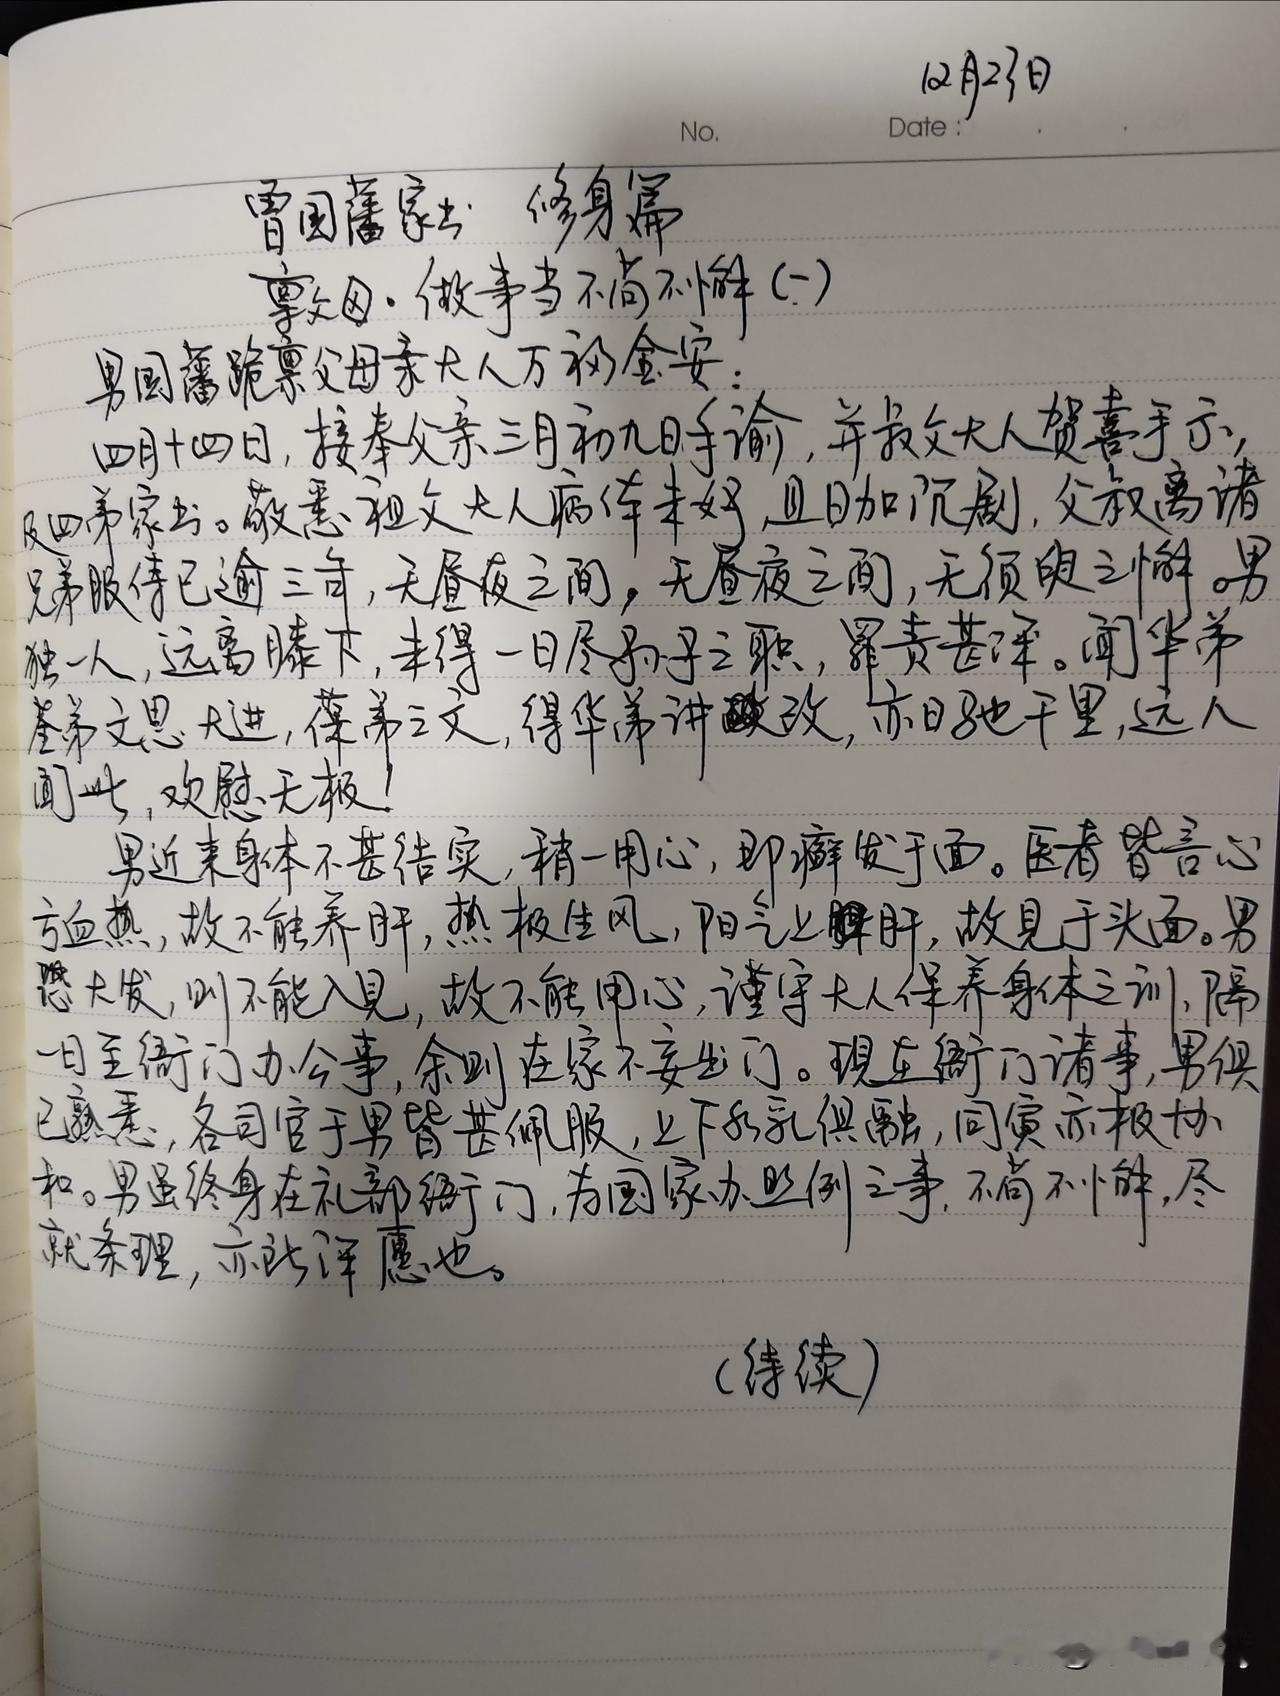 12月23日
No. Date：
曾国藩家书 修身篇
禀父母·做事当不苟不懈(一)
男国藩跪禀父母亲大人万福金安：
四月十四日，接奉父亲三月初九日手谕，并叔父大人贺喜手示，
及四弟家书。敬悉祖父大人病体未好，且日加沉剧，父叔离诸
兄弟服侍已逾三年，无昼夜之间，无昼夜之间，无须臾之懈。男
独一人，远离膝下，未得一日尽孙子之职，罪责甚深。闻华弟
荃弟文思大进，葆弟之文，得华弟讲改，亦日驰千里，远人
闻此，欢慰无极！
男近来身体不甚结实，稍一用心，即癣发于面。医者皆言心
亏血热，故不能养肝，热极生风，阳气上肝，故见于头面。男
恐大发，则不能入见，故不能用心，谨守大人保养身体之训，隔
一日至衙门办公事，余则在家不妄出门。现在衙门诸事，男俱
已熟悉，各司官于男皆甚佩服，上下水乳俱融，同寅亦极协
和。男虽终身在礼部衙门，为国家办照例之事，不苟不懈，尽
就条理，亦所深愿也。
(待续)